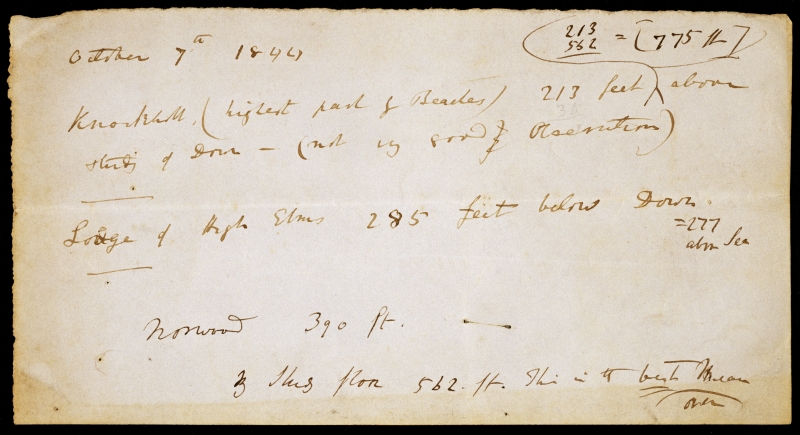 October 7th 1844
213
562 = [775 ft]
Knockholt, (highest part of Beeches) 213 feet) above
study of Down — (not very good Observation)
Lodge of High Elms 285 feet below Down
=277
above Sea
Norwood 390 ft. —
Study floor 562. ft. This is the best Mean
over